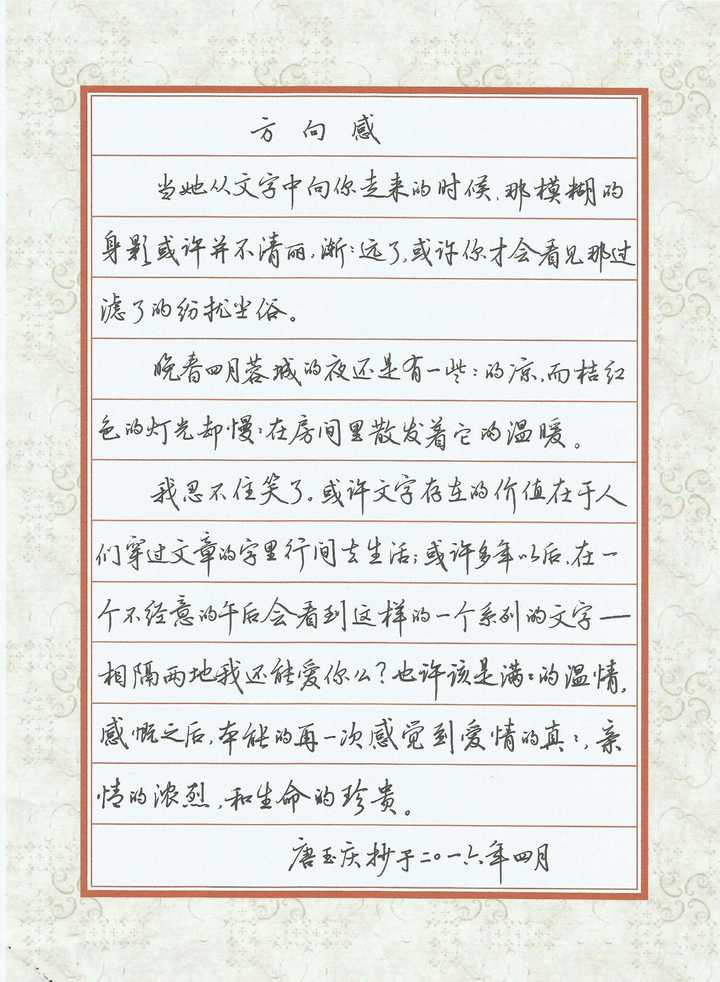 方向感
当她从文字中向你走来的时候,那模糊的
身影或许并不清丽,渐:远了,或许你才会看见那过
滤了的纷扰尘俗。
晚春四月蓉城的夜还是有一些:的凉,而桔红
色的灯光却慢:在房间里散发着它的温暖。
我忍不住笑了。或许文字存在的价值在于人
们穿过文章的字里行间去生活;或许多年以后,在一
个不经意的午后会看到这样的一个系列的文字—
相隔两地我还能爱你么?也许该是满:的温情,
感慨之后,本能的再一次感觉到爱情的真:,亲
情的浓烈,和生命的珍贵。
唐玉庆抄于二〇一六年四月